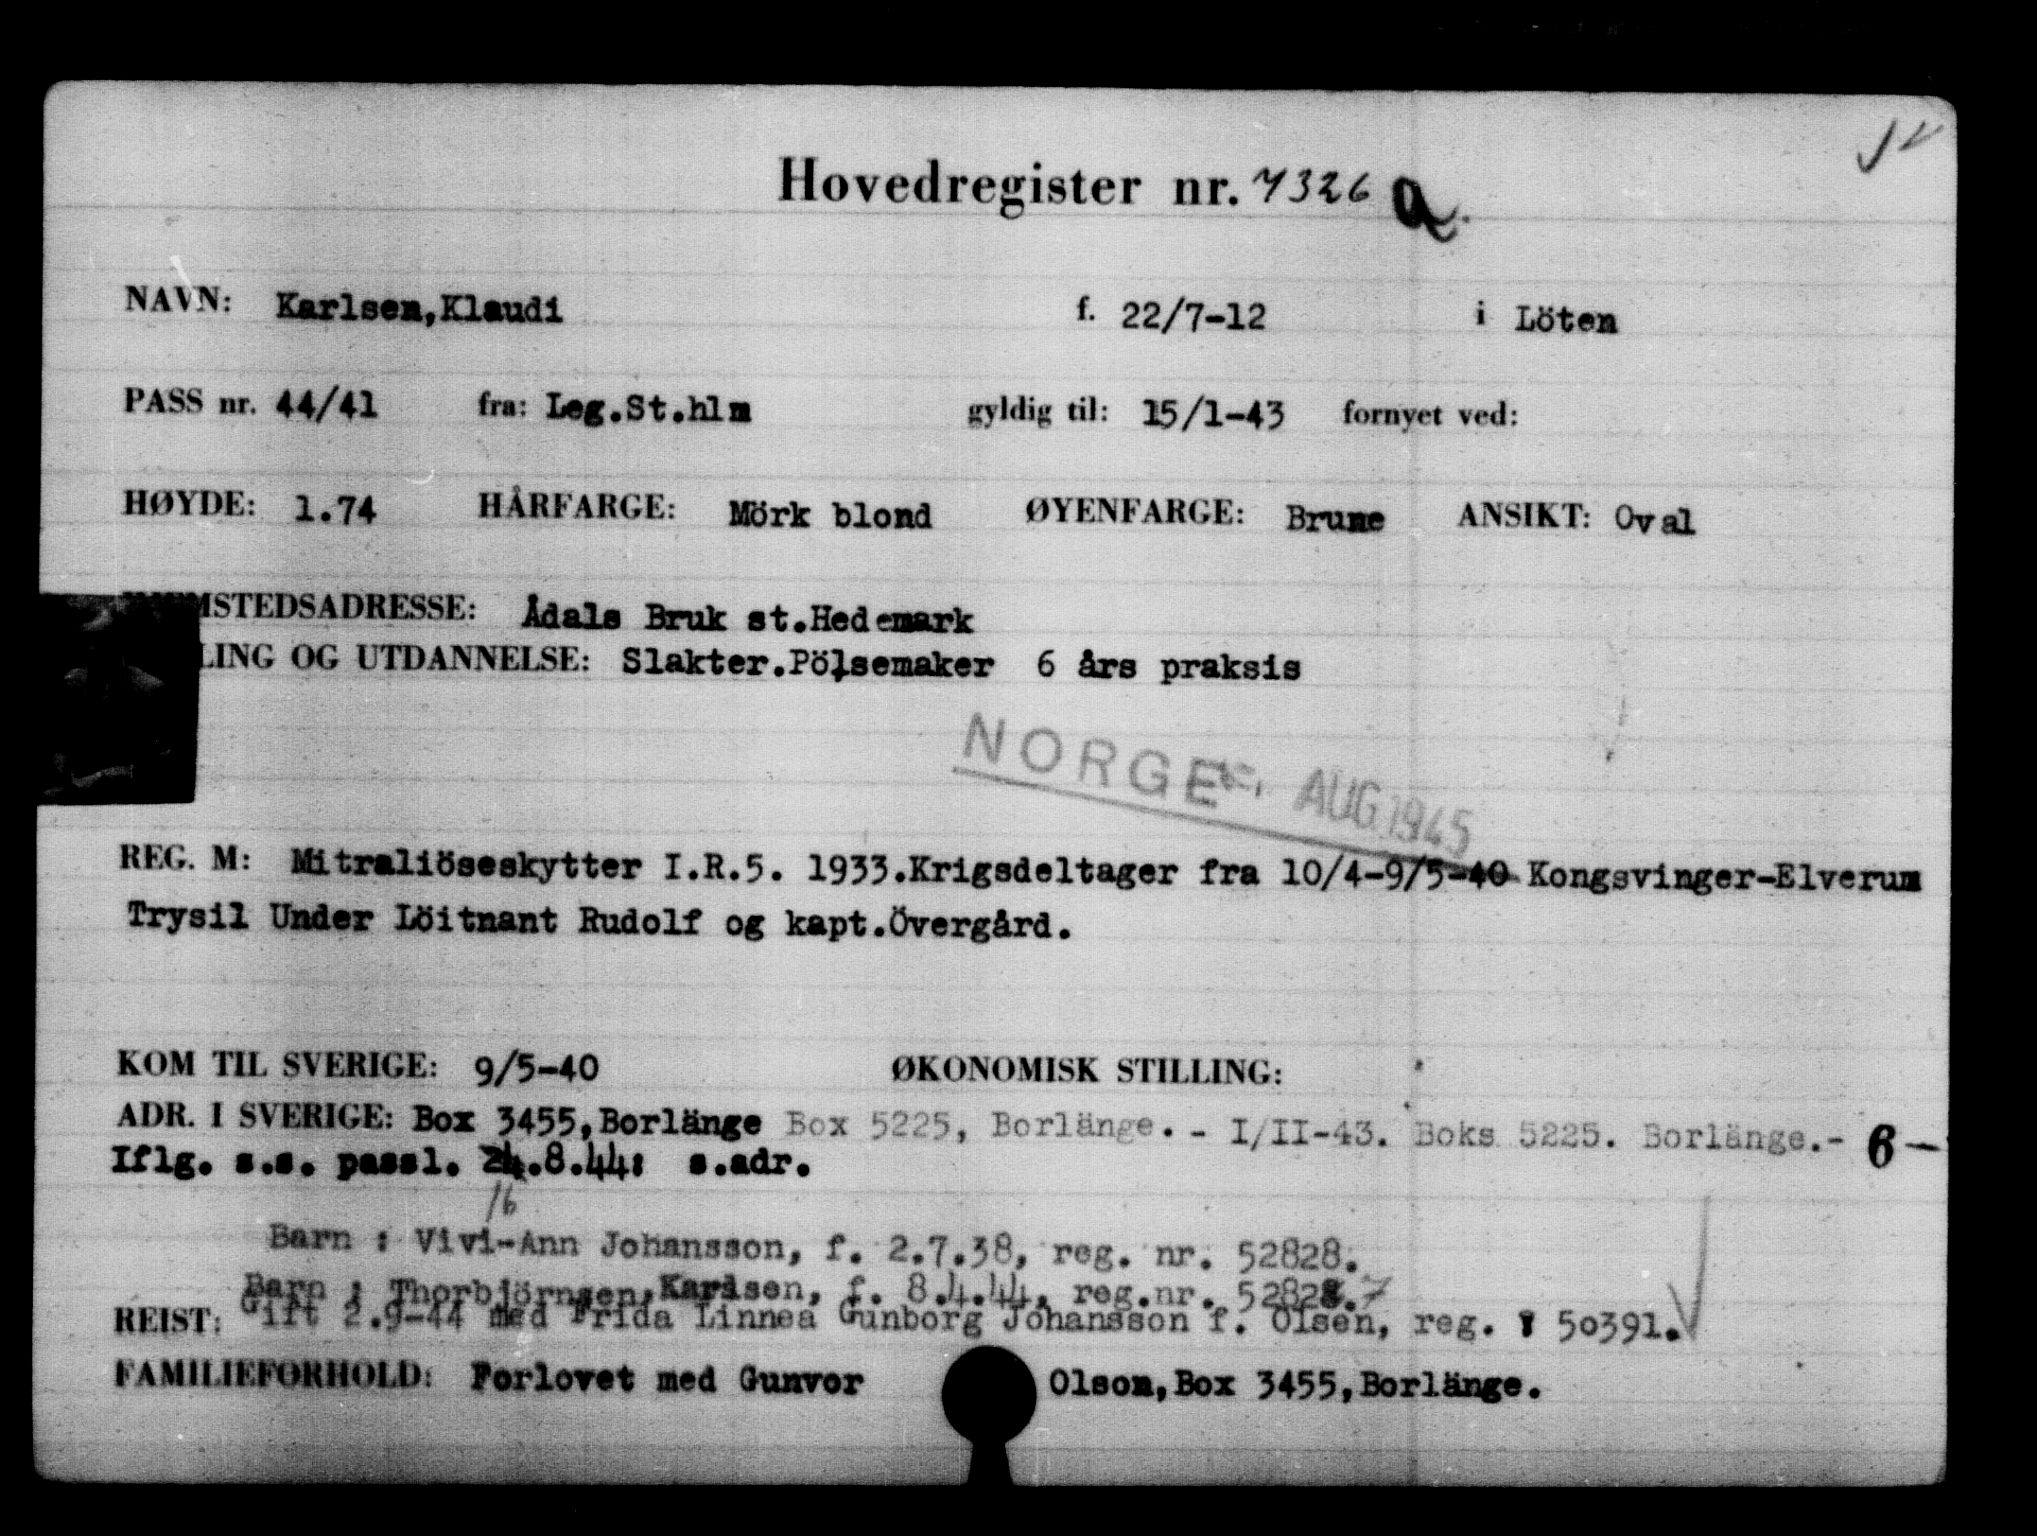 Hovedregister nr. 7326 a.
NAVN: Karlsen,Klaudi f. 22/7-12 i Löten
PASS nr. 44/41 fra: Leg.St.hlm gyldig til: 15/1-43 fornyet ved:
HØYDE: 1.74 HÅRFARGE: Mörk blond ØYENFARGE: Brune ANSIKT: Oval
MSTEDSADRESSE: Ådals Bruk st.Hedemark
LING OG UTDANNELSE: Slakter.Pölsemaker 6 års praksis
NORGE AUG 1945
REG. M: Mitraliöseskytter I.R.5. 1933.Krigsdeltager fra 10/4-9/5-40 Kongsvinger-Elverum
Trysil Under Löitnant Rudolf og kapt.Övergård.
KOM TIL SVERIGE: 9/5-40 ØKONOMISK STILLING:
ADR. I SVERIGE: Box 3455,Borlänge Box 5225, Borlänge. - I/II-43. Boks 5225. Borlänge.- 6-
Iflg. s.s. passl. 24.8.44: s.adr.
16
Barn : Vivi-Ann Johansson, f. 2.7.38, reg. nr. 52828.
Barn : Thorbjörnsen,Karlsen, f. 8.4.44, reg.nr. 52828.7
REIST: Gift 2.9-44 med Frida Linnea Gunborg Johansson f. Olsen, reg. 50391.
FAMILIEFORHOLD: Forlovet med Gunvor Olson,Box 3455,Borlänge.